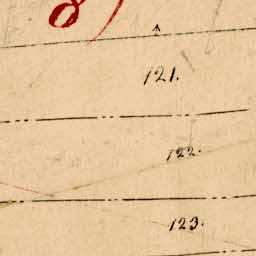 8)
121.
122.
123.